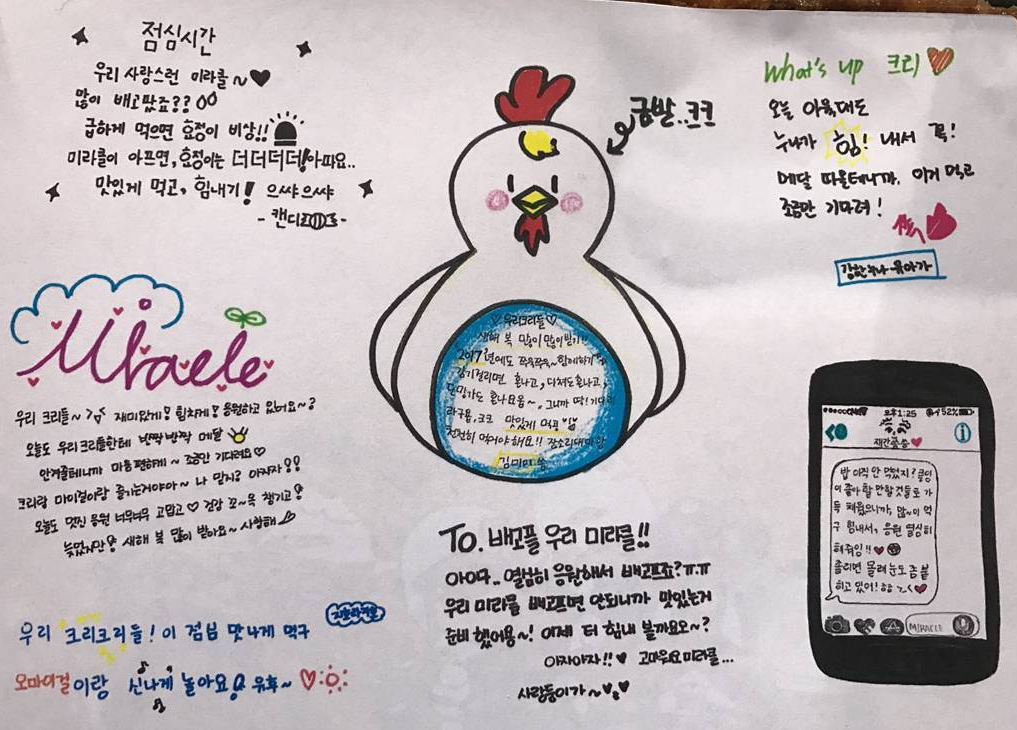 점심시간
우리 사랑스런 미라클~♥
많이 배고팠죠??
급하게 먹으면 효정이 비상!!
미라클이 아프면, 효정이는 더더더더! 아파요..
맛있게 먹고, 힘내기! 으쌰으쌰
- 캔디 -
금발..ㅋㅋ
What's up 크리
오늘 아육대도
누나가 힘! 내서 꼭!
메달 따올테니까. 이거 먹고
조금만 기다려!
강한누나 유아가
Miracle
우리 크리들~ 재미있게! 힘차게! 응원하고 있어요~?
오늘도 우리 크리들한테 반짝반짝 메달
안겨줄테니까 마음 편하게~ 조금만 기다려요♡
크리랑 마이걸이랑 즐기는거야아~ 나 믿지? 아자자!!
오늘도 멋진 응원 너무너무 고맙고♡ 건강 꼬~옥 챙기고!
늦었지만! 새해 복 많이 받아요~ 사랑해
우리크리들♡
새해 복 많이많이받기!!
2017년에도 쭈욱쭈욱~함께하기
감기걸리면 혼나고, 다쳐도혼나고,
도망가도 혼나요옹~. 그니까 딱!
맛있게 먹고
천천히 먹어야 해요!! 잔소리대마왕
김미미
오후1:25
52%
재간둥쓩♥
밥 아직 안 먹었지? 클잉
이 좋아할 만한것들로 가
득 채웠으니까, 많~이 먹
구 힘내서, 응원 열심히
해줘잉!!♥
졸리면 몰래 눈도 좀 붙
히고 있어! ㅎㅎ >_<♥
MIRACLE
To. 배고플 우리 미라클!!
아이구.. 열심히 응원해서 배고프죠?ㅠㅠ
우리 미라클 배고프면 안되니까 맛있는거
준비했어용~! 이제 더 힘내 볼까요오~?
아자아자!!♥ 고마워요 미라클...
사랑둥이가~♥
우리 크리크리들! 이 점심 맛나게 먹구
오마이걸이랑 신나게 놀아요! 유후~♡